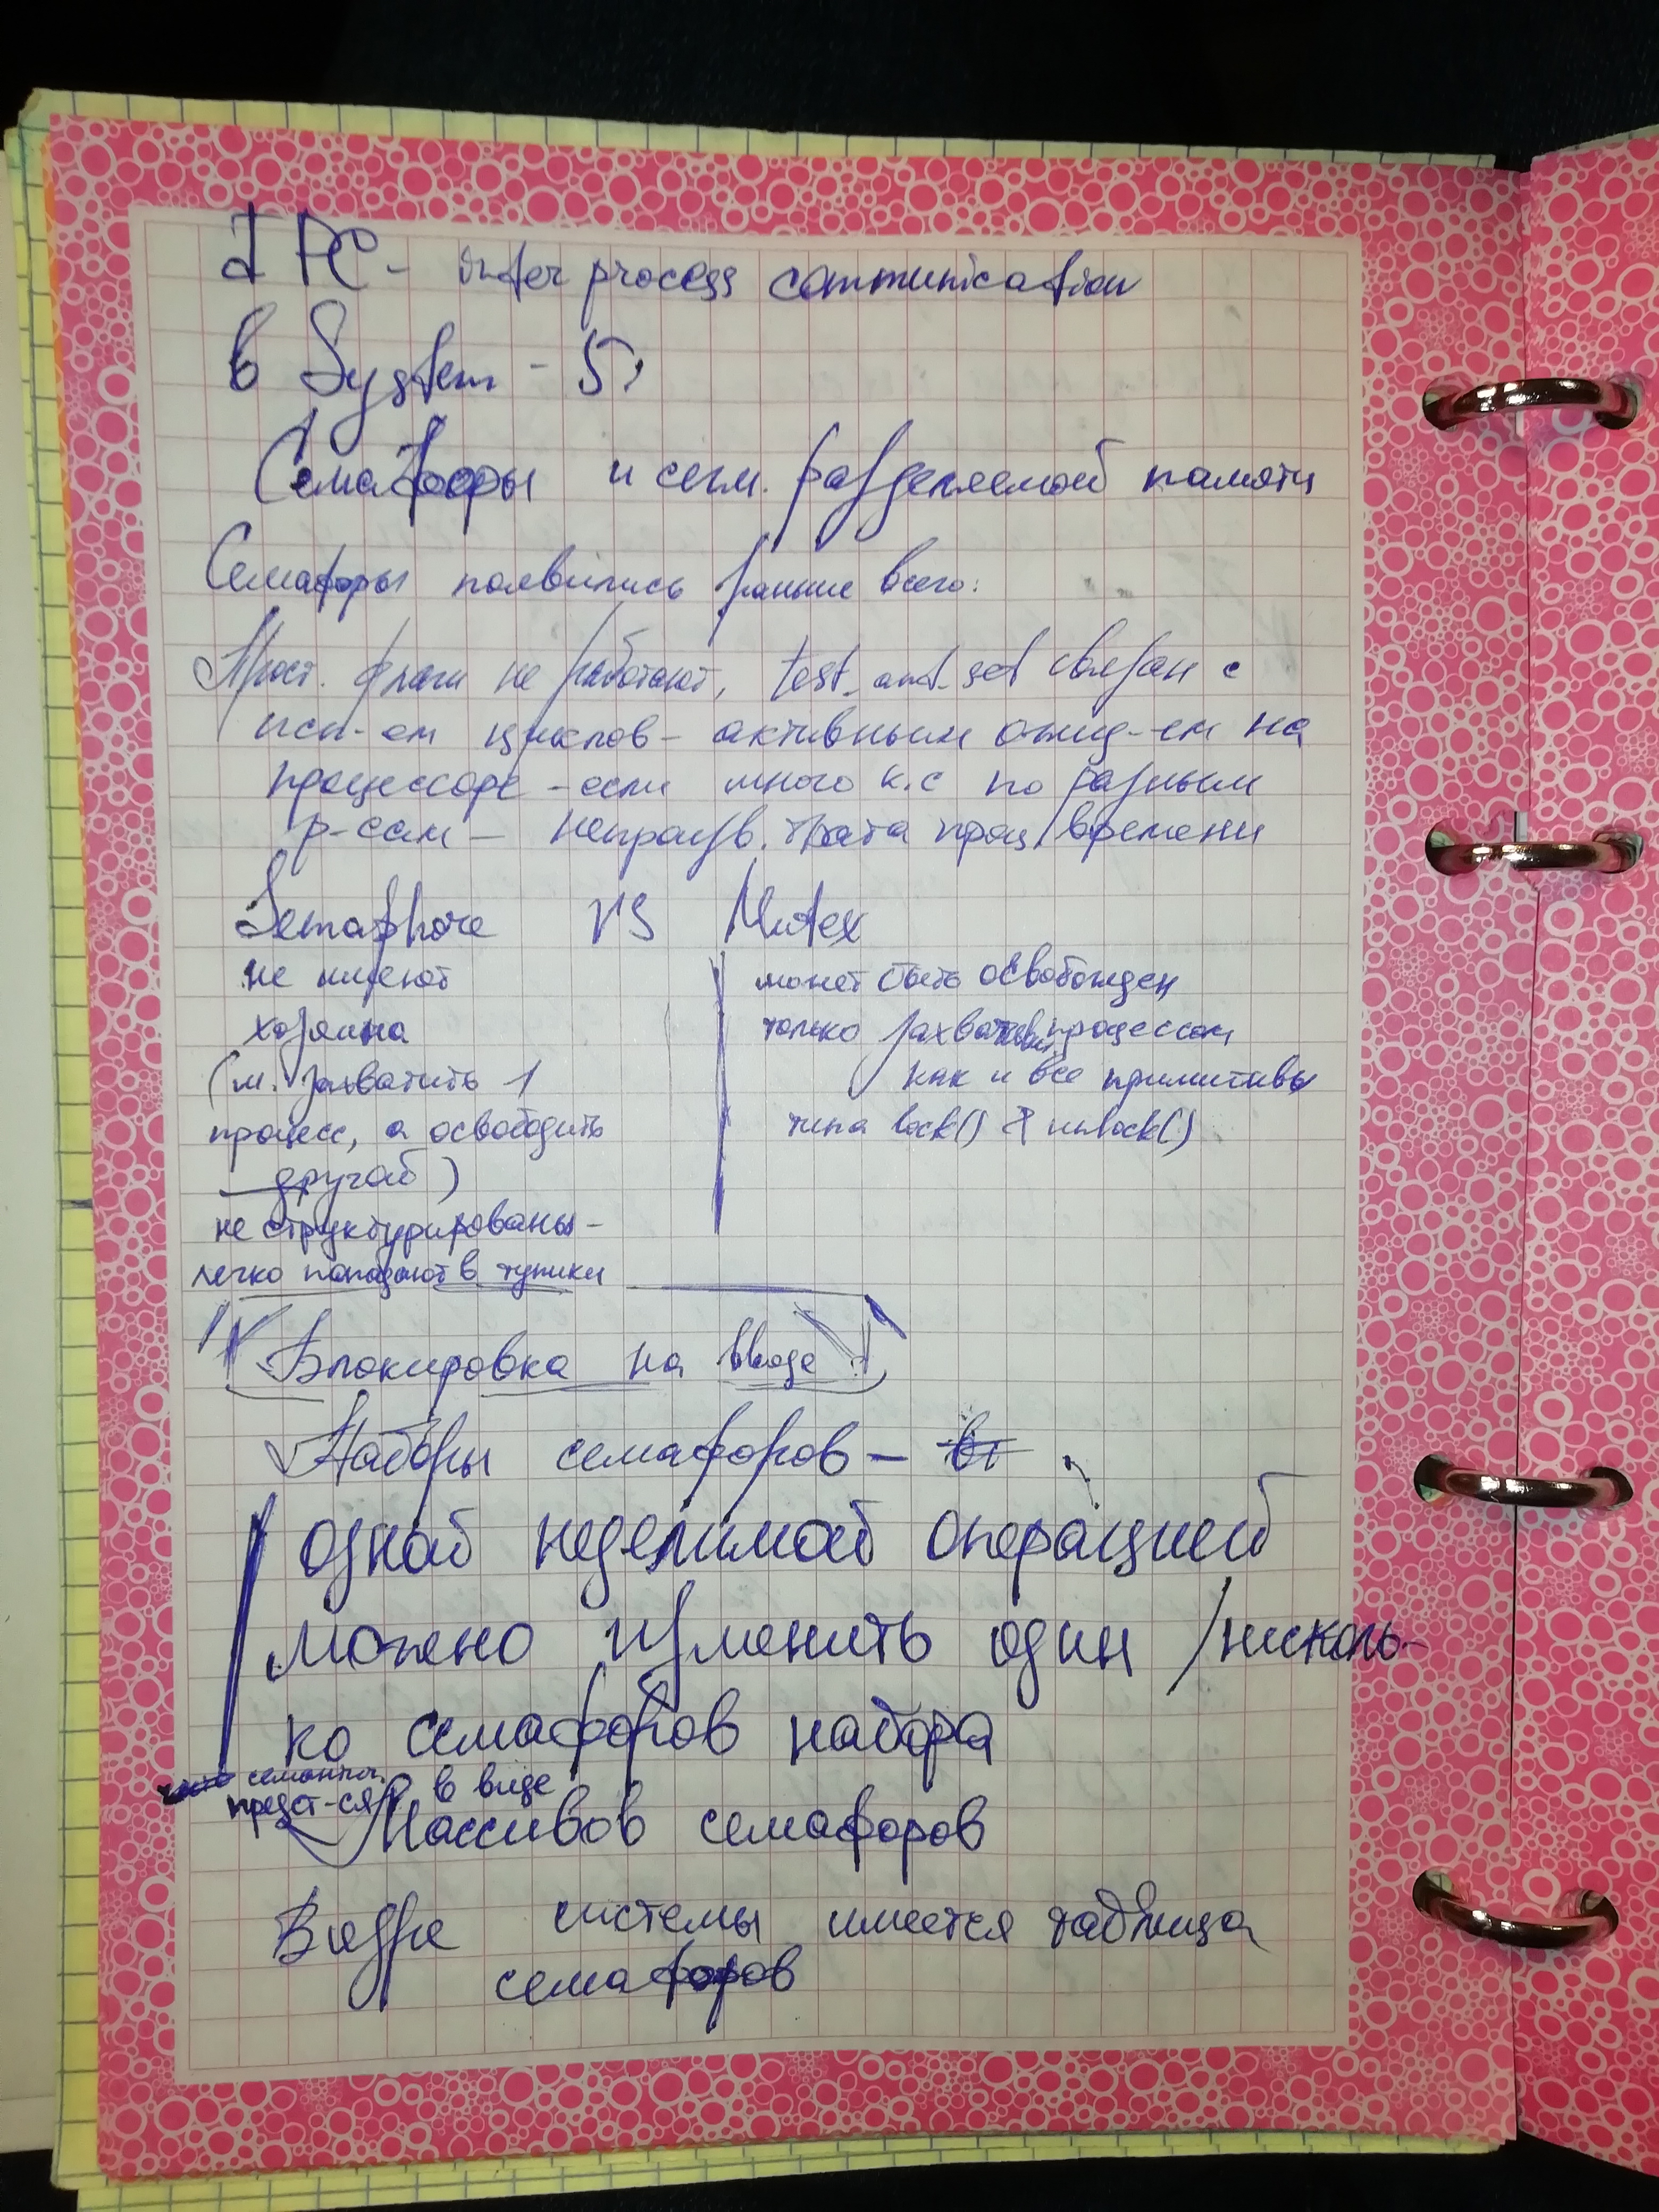 IPC - inter process communication
в System - 5:
Семафоры и сегм. разделяемой памяти
Семафоры появились раньше всего:
Прост. флаги не работают, test_and_set связан с
исп-ем циклов - активным ожид-ем на
процессоре - если много к.с по разным
р-сам - непроизв. трата проц. времени
Semaphore VS Mutex
не имеют
хозяина
(м. захватить 1
процесс, а освободить
другой)
не структурированы -
легко попадают в тупики
может быть освобожден
только захватившим процессом
как и все примитивы
типа lock() & unlock()
Блокировка на входе!
Наборы семафоров -
одной неделимой операцией
можно изменить один / нисколь-
ко семафоров набора
предст-ся в виде
Массивов семафоров
В ядре системы имеется таблица
семафоров